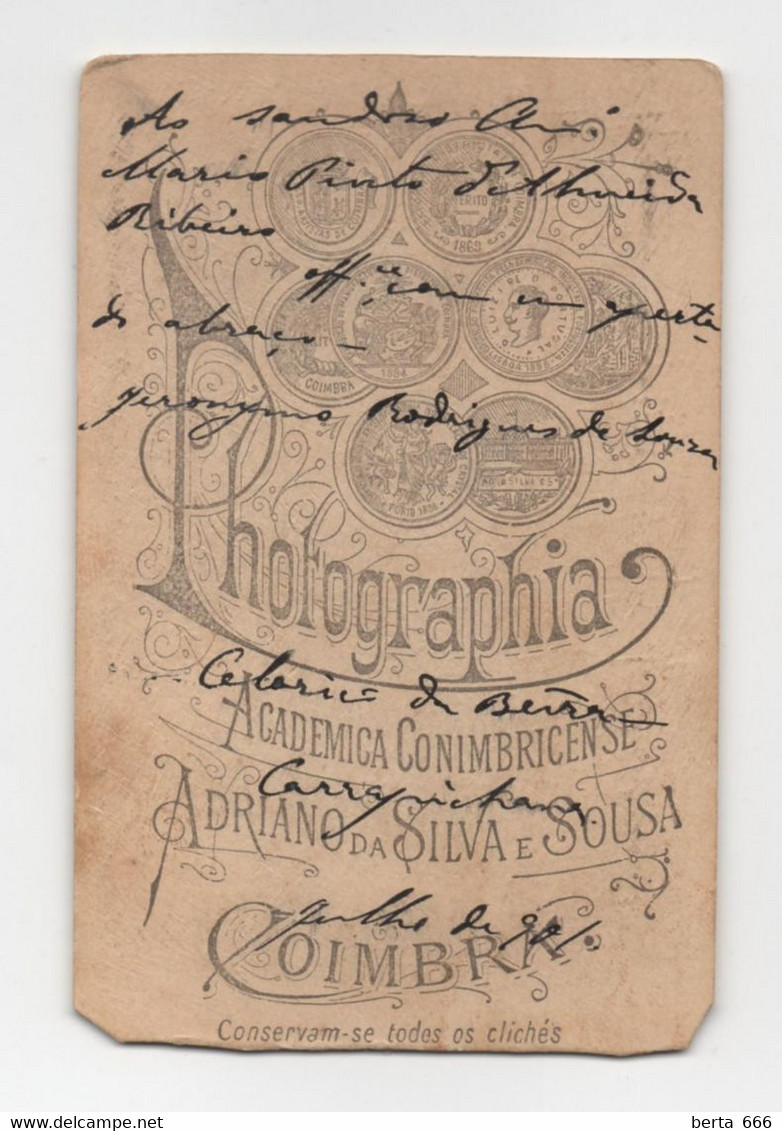 Ao saudoso Am.º
Mario Pinto d'Almeida
Ribeiro
off.ce com um aperta
do abraço –
Jeronymo Rodrigues de Souza
MERITO
1869
COIMBRA
1884
PORTO
Photographia
Celorico da Beira –
ACADEMICA CONIMBRICENSE
Carrapichana
ADRIANO DA SILVA E SOUSA
Julho de 901.
COIMBRA.
Conservam-se todos os clichés
berta 666